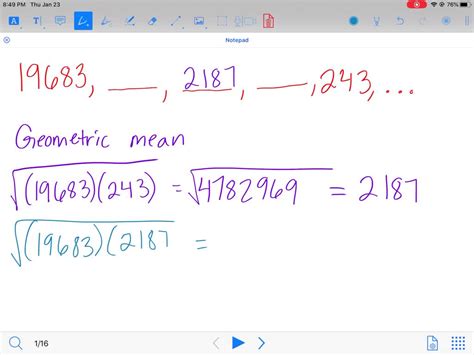 8:49 PM Thu Jan 23 76%
Notepad
19683, ___, 2187, ___, 243, ...
Geometric mean
√(19683)(243) = √4782969 = 2187
√(19683)(2187 =
1/16